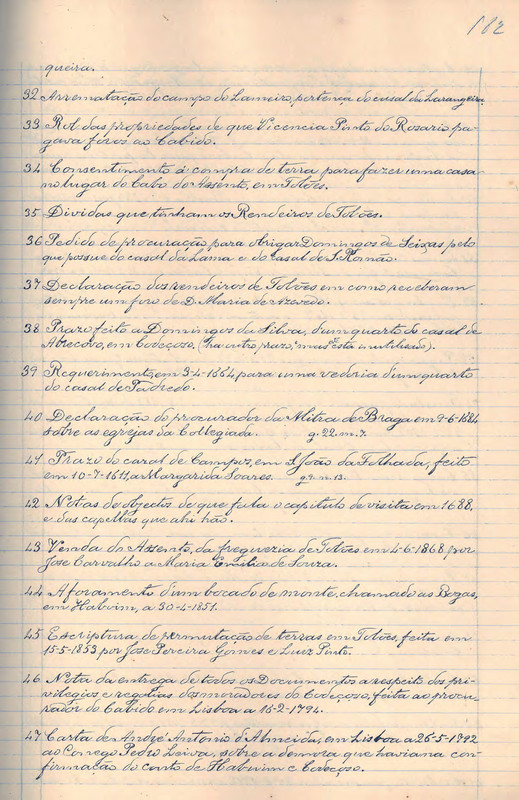 182
queira.
32 Arrematação do campo do Lameiro, pertença do casal da Larangeira
33 Rol das propriedades de que Vicencia Pinto do Rosario pa-
gava foros ao Cabido.
34 Consentimento á compra de terra para fazer uma casa
no lugar do Cabo do Assento, em Tolões.
35 Dividas que tinham os Rendeiros de Tolões.
36 Pedido de procuração para obrigar Domingos de Seixas pelo
que possue do casal da Lama e do casal de S. Romão.
37 Declaração dos rendeiros de Tolões em como receberam
sempre um foro de D. Maria de Azevedo.
38 Prazo feito a Domingos da Silva, d'um quarto do casal de
em Codeçoso. (ha outro prazo, mas está inutilisado).
39 Requerimento, em 3-4-1864, para uma vedoria d'um quarto
do casal de
40 Declaração do procurador da Mitra de Braga em 9-6-1884
sobre as egrejas da Collegiada. g. 22. m. 7.
41 Prazo do casal de Campos, em S. João da Folhada, feito
em 10-7-1511, a Margarida Soares. g. 9. m. 13.
42 Notas de objectos de que fala o capitulo de visita em 1688,
e das capellas que ahi hão.
43 Venda do Assento, da freguezia de Tolões em 4-6-1868 por
José Carvalho a Maria Emilia de Souza.
44 Aforamento d'um bocado de monte, chamado as Bogas,
em Habuim, a 30-4-1851.
45 Escriptura de permutação de terras em Tolões, feita em
15-5-1853 por José Pereira Gomes e Luiz Pinto.
46 Nota da entrega de todos os Documentos a respeito dos pri-
vilegios e regalias dos moradores do Codeçoso, feita ao procu-
rador do Cabido em Lisboa a 15-2-1794.
47 Carta de André Antonio d'Almeida, em Lisboa a 26-5-1792
ao Conego Pedro Leiva, sobre a demora que havia na con-
firmação do couto de Habuim e Codeçoso.